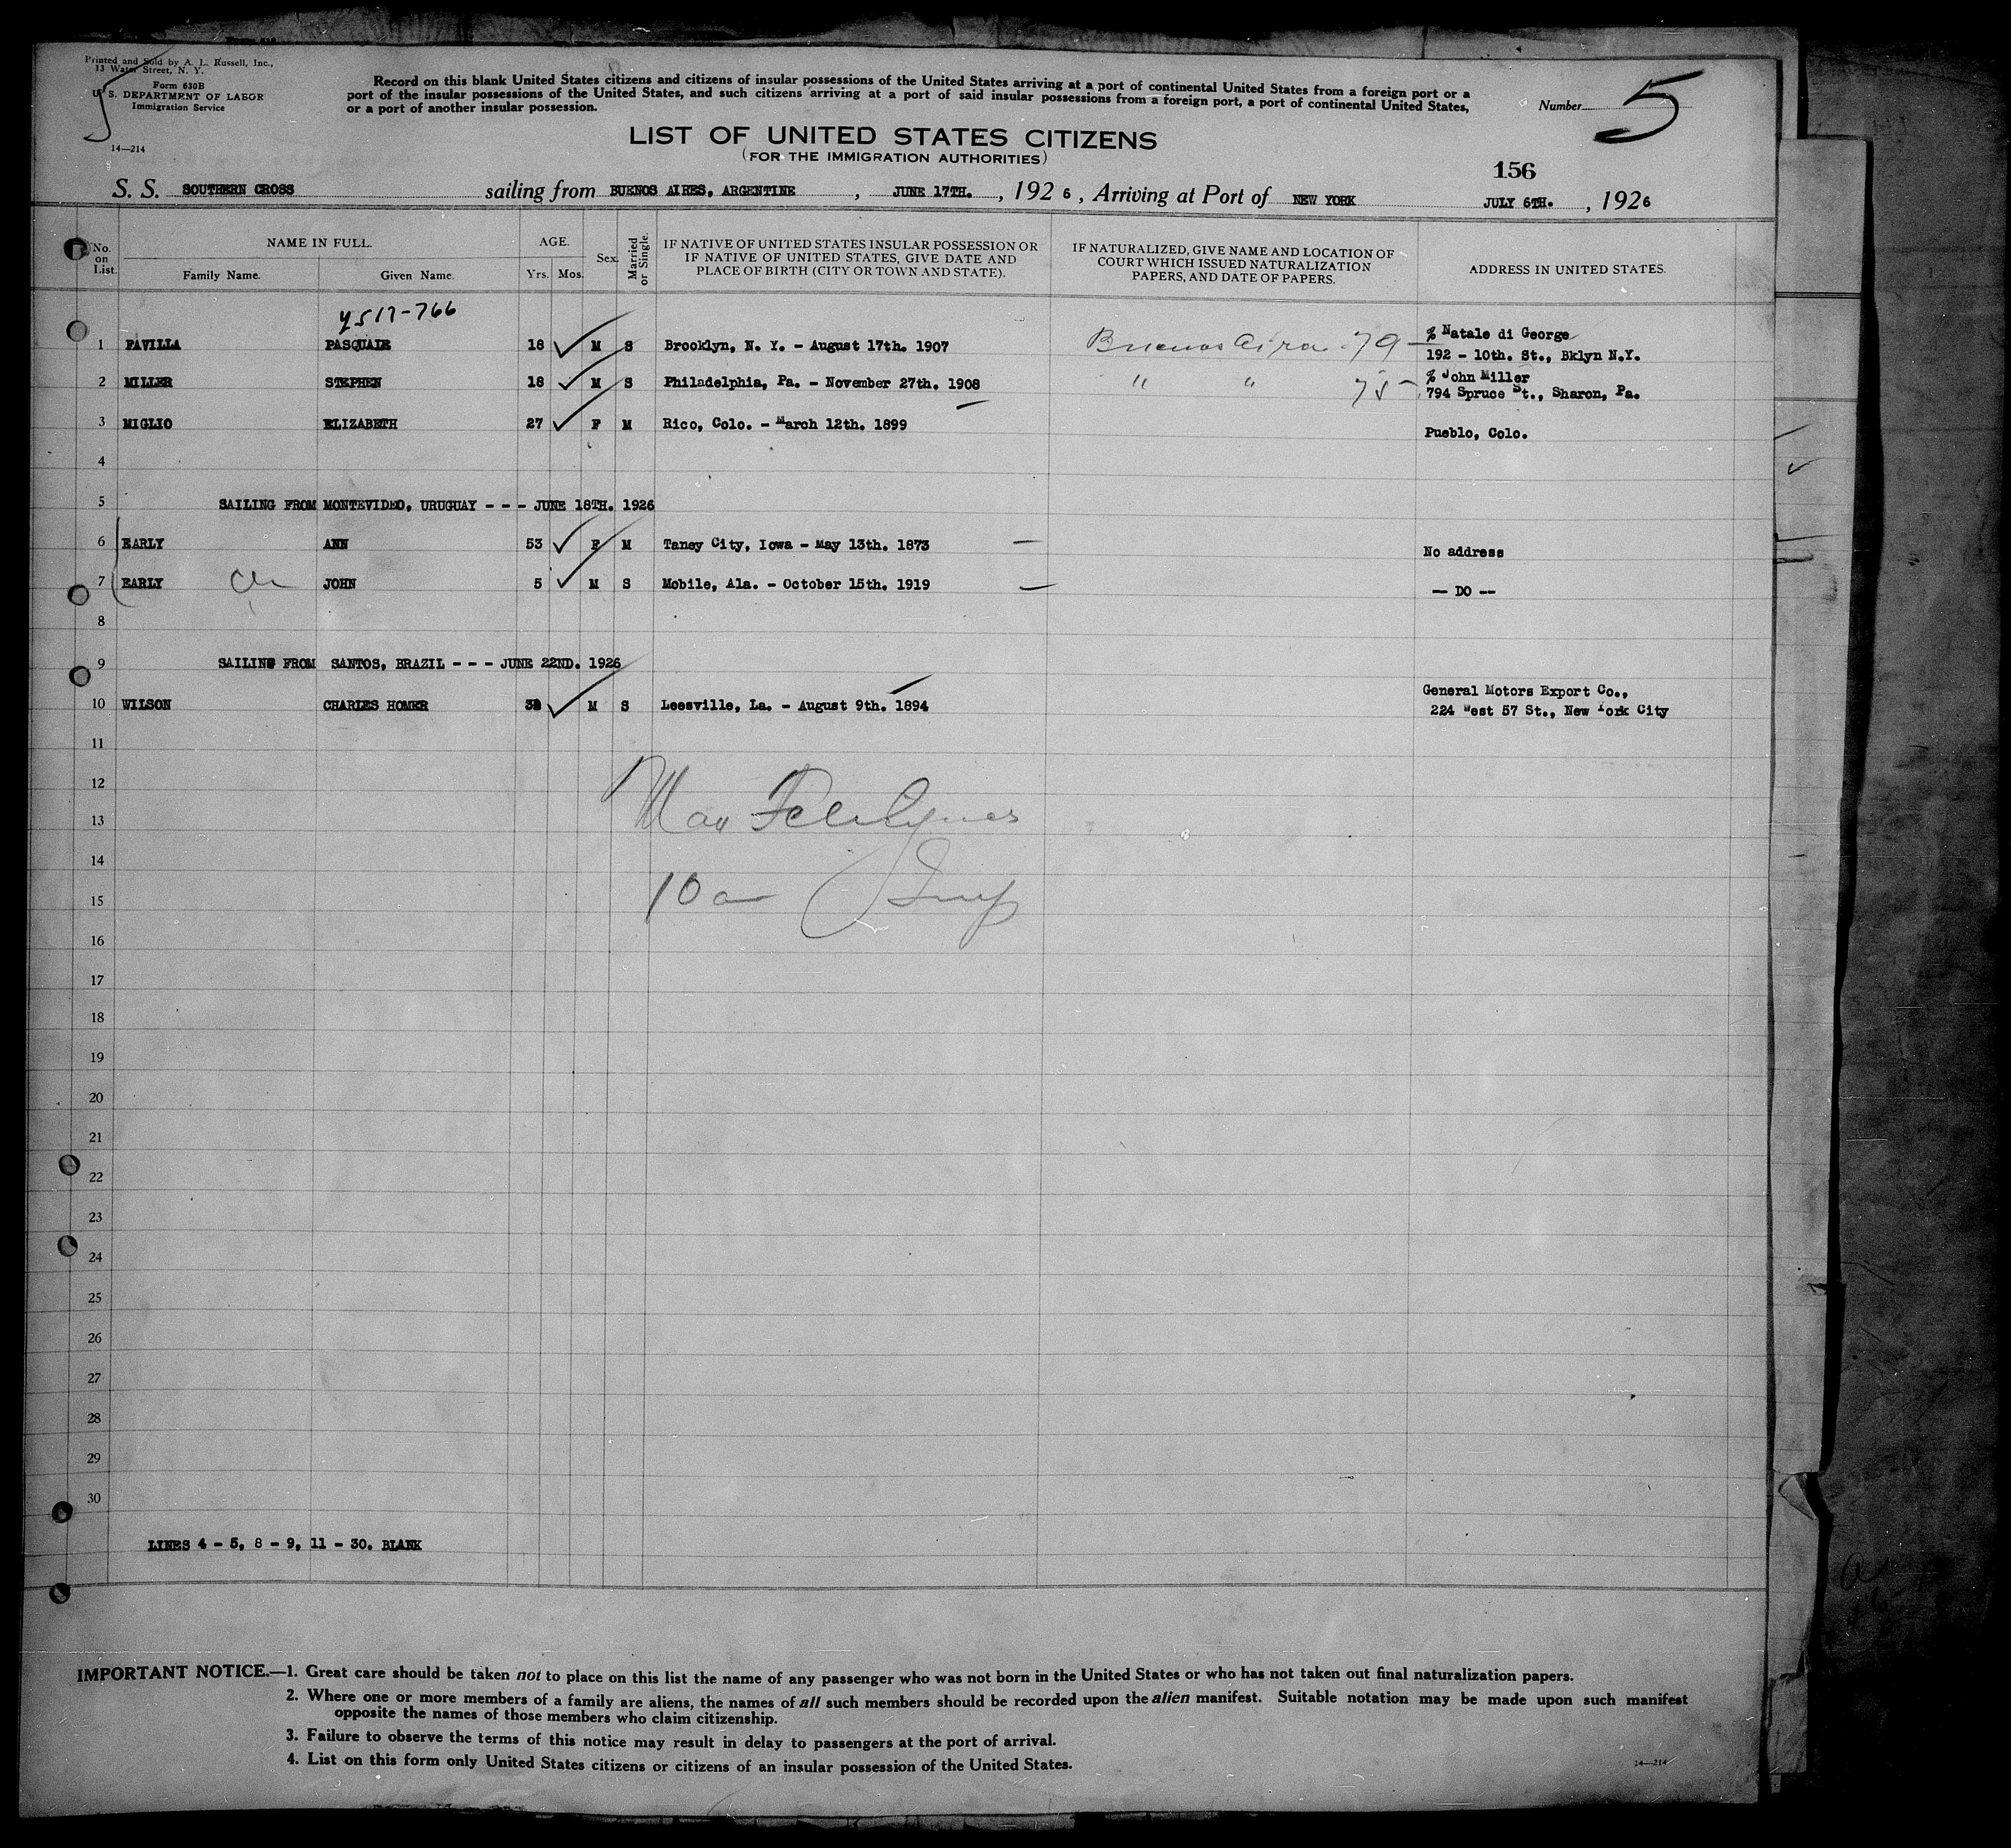 Printed and Sold by A. L. Russell, Inc.,
13 Water Street, N. Y.
Form 630B
U. S. DEPARTMENT OF LABOR
Immigration Service
14—214
Record on this blank United States citizens and citizens of insular possessions of the United States arriving at a port of continental United States from a foreign port or a
port of the insular possessions of the United States, and such citizens arriving at a port of said insular possessions from a foreign port, a port of continental United States,
or a port of another insular possession.
Number 5
LIST OF UNITED STATES CITIZENS
(FOR THE IMMIGRATION AUTHORITIES)
156
S. S. SOUTHERN CROSS sailing from BUENOS AIRES, ARGENTINE, JUNE 17TH., 1926, Arriving at Port of NEW YORK JULY 6TH., 1926
No. on List. NAME IN FULL. AGE. Sex. Married or Single. IF NATIVE OF UNITED STATES INSULAR POSSESSION OR IF NATIVE OF UNITED STATES, GIVE DATE AND PLACE OF BIRTH (CITY OR TOWN AND STATE). IF NATURALIZED, GIVE NAME AND LOCATION OF COURT WHICH ISSUED NATURALIZATION PAPERS, AND DATE OF PAPERS. ADDRESS IN UNITED STATES.
Family Name. Given Name. Yrs. Mos.
4517-766
1 FAVILLA PASQUALE 18 M S Brooklyn, N. Y. - August 17th. 1907 Buenos Aires 79 % Natale di George
192 - 10th. St., Bklyn N.Y.
2 MILLER STEPHEN 18 M S Philadelphia, Pa. - November 27th. 1908 " " 75 % John Miller
794 Spruce St., Sharon, Pa.
3 MIGLIO ELIZABETH 27 F M Rico, Colo. - March 12th. 1899 Pueblo, Colo.
4
5 SAILING FROM MONTEVIDEO, URUGUAY - - - JUNE 18TH. 1926
6 EARLY ANN 53 F M Taney City, Iowa - May 13th. 1873 No address
7 EARLY Ch JOHN 5 M S Mobile, Ala. - October 15th. 1919 — DO --
8
9 SAILING FROM SANTOS, BRAZIL - - - JUNE 22ND. 1926
10 WILSON CHARLES HOMER M S Leesville, La. - August 9th. 1894 General Motors Export Co.,
224 West 57 St., New York City
11
12
13
14
15 10 a Insp
16
17
18
19
20
21
22
23
24
25
26
27
28
29
30
LINES 4 - 5, 8 - 9, 11 - 30. BLANK
IMPORTANT NOTICE.—1. Great care should be taken not to place on this list the name of any passenger who was not born in the United States or who has not taken out final naturalization papers.
2. Where one or more members of a family are aliens, the names of all such members should be recorded upon the alien manifest. Suitable notation may be made upon such manifest
opposite the names of those members who claim citizenship.
3. Failure to observe the terms of this notice may result in delay to passengers at the port of arrival.
4. List on this form only United States citizens or citizens of an insular possession of the United States.
14—214